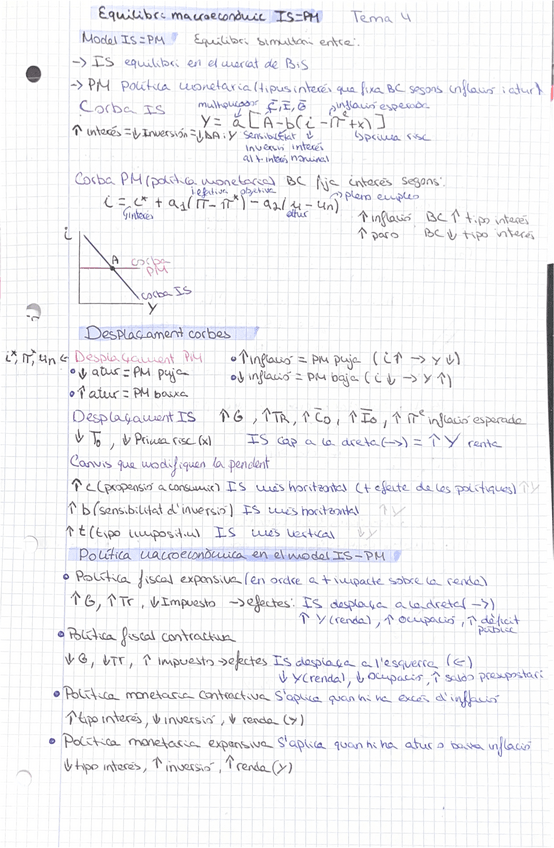 Equilibri macroeconòmic IS=PM Tema 4
Model IS=PM Equilibri simultani entre:
→ IS equilibri en el mercat de BiS
→ PM Política monetaria (tipus interés que fixa BC segons inflació i atur)
Corba IS multiplicador C̅, I̅, G̅ inflació esperada
Y = a [A - b(i - πᵉ + x)]
↑ interés = ↓ Inversión = ↓ DA i Y sensibilitat prima risc
inversió interés
al tipo interés nominal
Corba PM (política monetaria) BC fija interés segons:
efectiva objetivo pleno empleo
i = i* + a₁(π - π*) - a₂(u - un)
interés atur ↑ inflació BC ↑ tipo interés
↑ paro BC ↓ tipo interés
i
A corba
PM
corba IS
Y
Desplaçament corbes
i*, π*, un ← Desplaçament PM • ↑ inflació = PM puja (i↑ → Y↓)
• ↓ atur = PM puja • ↓ inflació = PM baja (i↓ → Y↑)
• ↑ atur = PM baixa
Desplaçament IS ↑ G, ↑ TR, ↑ C̅o, ↑ I̅o, ↑ πᵉ inflació esperada
↓ T̅o, ↓ Prima risc (x) IS cap a la dreta (→) = ↑ Y renta
Canvis que modifiquen la pendent
↑ c (propensió a consumir) IS més horitzontal (+ efecte de les polítiques) ↑Y
↑ b (sensibilitat d'inversió) IS més horitzontal ↑Y
↑ t (tipo impositiu) IS més vertical ↓Y
Política macroeconòmica en el model IS-PM
• Política fiscal expansiva (en ordre a + impacte sobre la renda)
↑ G, ↑ Tr, ↓ Impuesto → efectes: IS desplaça a la dreta (→)
↑ Y (renda), ↑ Ocupació, ↑ dèficit
públic
• Política fiscal contractiva
↓ G, ↓ TR, ↑ impuesto → efectes IS desplaça a l'esquerra (←)
↓ Y (renda), ↓ Ocupació, ↑ saldo presupostari
• Política monetaria contractiva S'aplica quan hi ha excés d'inflació
↑ tipo interés, ↓ inversió, ↓ renda (Y)
• Política monetaria expansiva S'aplica quan hi ha atur o baixa inflació
↓ tipo interés, ↑ inversió, ↑ renda (Y)